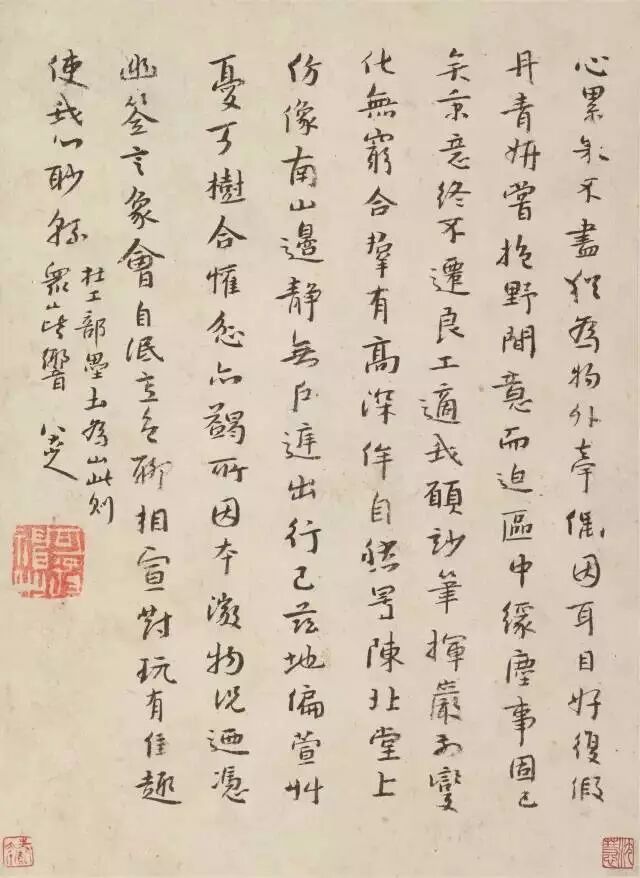 心累矣不盡猶為物外牽偶因耳目好復假
丹青妍嘗抱野間意而迫區中緣塵事固已
矣秉意終不遷良工適我願妙筆揮嚴變
化無窮合羣有高深侔自然陳北堂上
仿像南山邊靜無戶庭出行已茲地偏萱艸
憂可樹合懽忿亦蠲所因本微物況迺憑
幽筌言象會自泯意色聊相宣對玩有佳趣
使我心眇緜
杜工部壘土為山此則
眾山皆響
八大山人